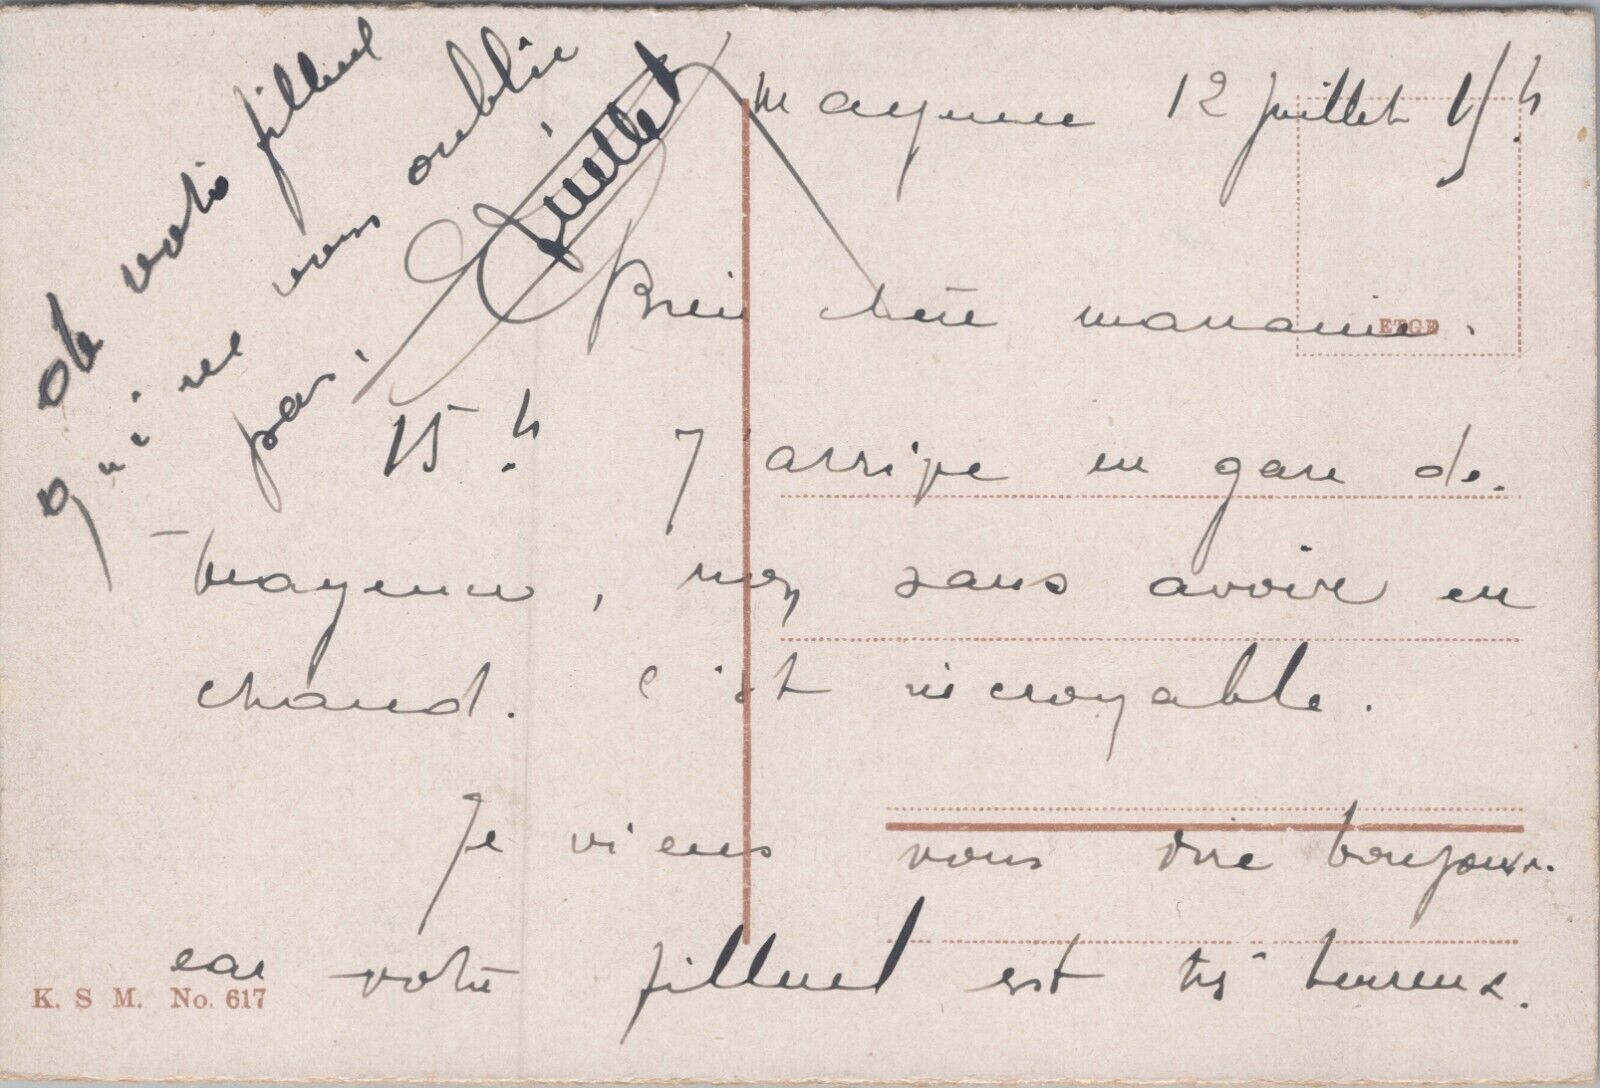 Mayence 12 juillet 15 h
Bien chère marraine.
15 h J'arrive en gare de
Mayence, non sans avoir eu
chaud. C'est incroyable.
Je viens vous dire bonjour.
car votre filleul est très heureux.
de votre filleul
qui ne vous oublie
pas.
K. S M. No. 617